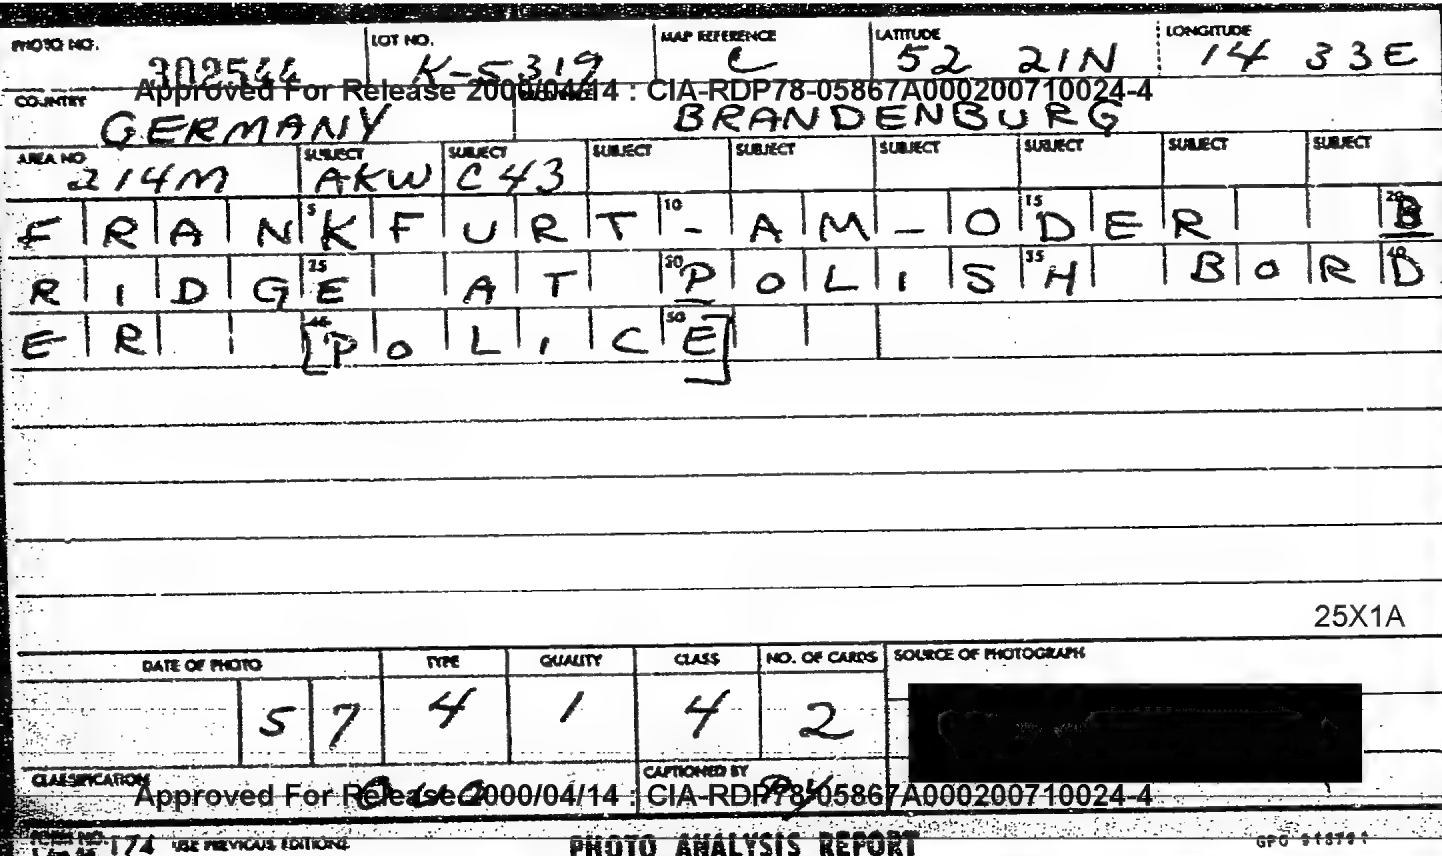 PHOTO NO. LOT NO. MAP REFERENCE LATITUDE LONGITUDE
302544 K-5319 C 52 21N 14 33E
Approved For Release 2000/04/14 : CIA-RDP78-05867A000200710024-4
COUNTRY
GERMANY BRANDENBURG
AREA NO SUBJECT SUBJECT SUBJECT SUBJECT SUBJECT SUBJECT SUBJECT SUBJECT
214M AKW C43
5 10 15 20
FRANKFURT-AM-ODER B
25 30 35 40
RIDGE AT POLISH BORD
45 50
ER [POLICE]
25X1A
DATE OF PHOTO TYPE QUALITY CLASS NO. OF CARDS SOURCE OF PHOTOGRAPH
57 4 1 4 2
CLASSIFICATION CAPTIONED BY
Approved For Release 2000/04/14 : CIA-RDP78-05867A000200710024-4
FORM NO. 174 USE PREVIOUS EDITIONS PHOTO ANALYSIS REPORT GPO